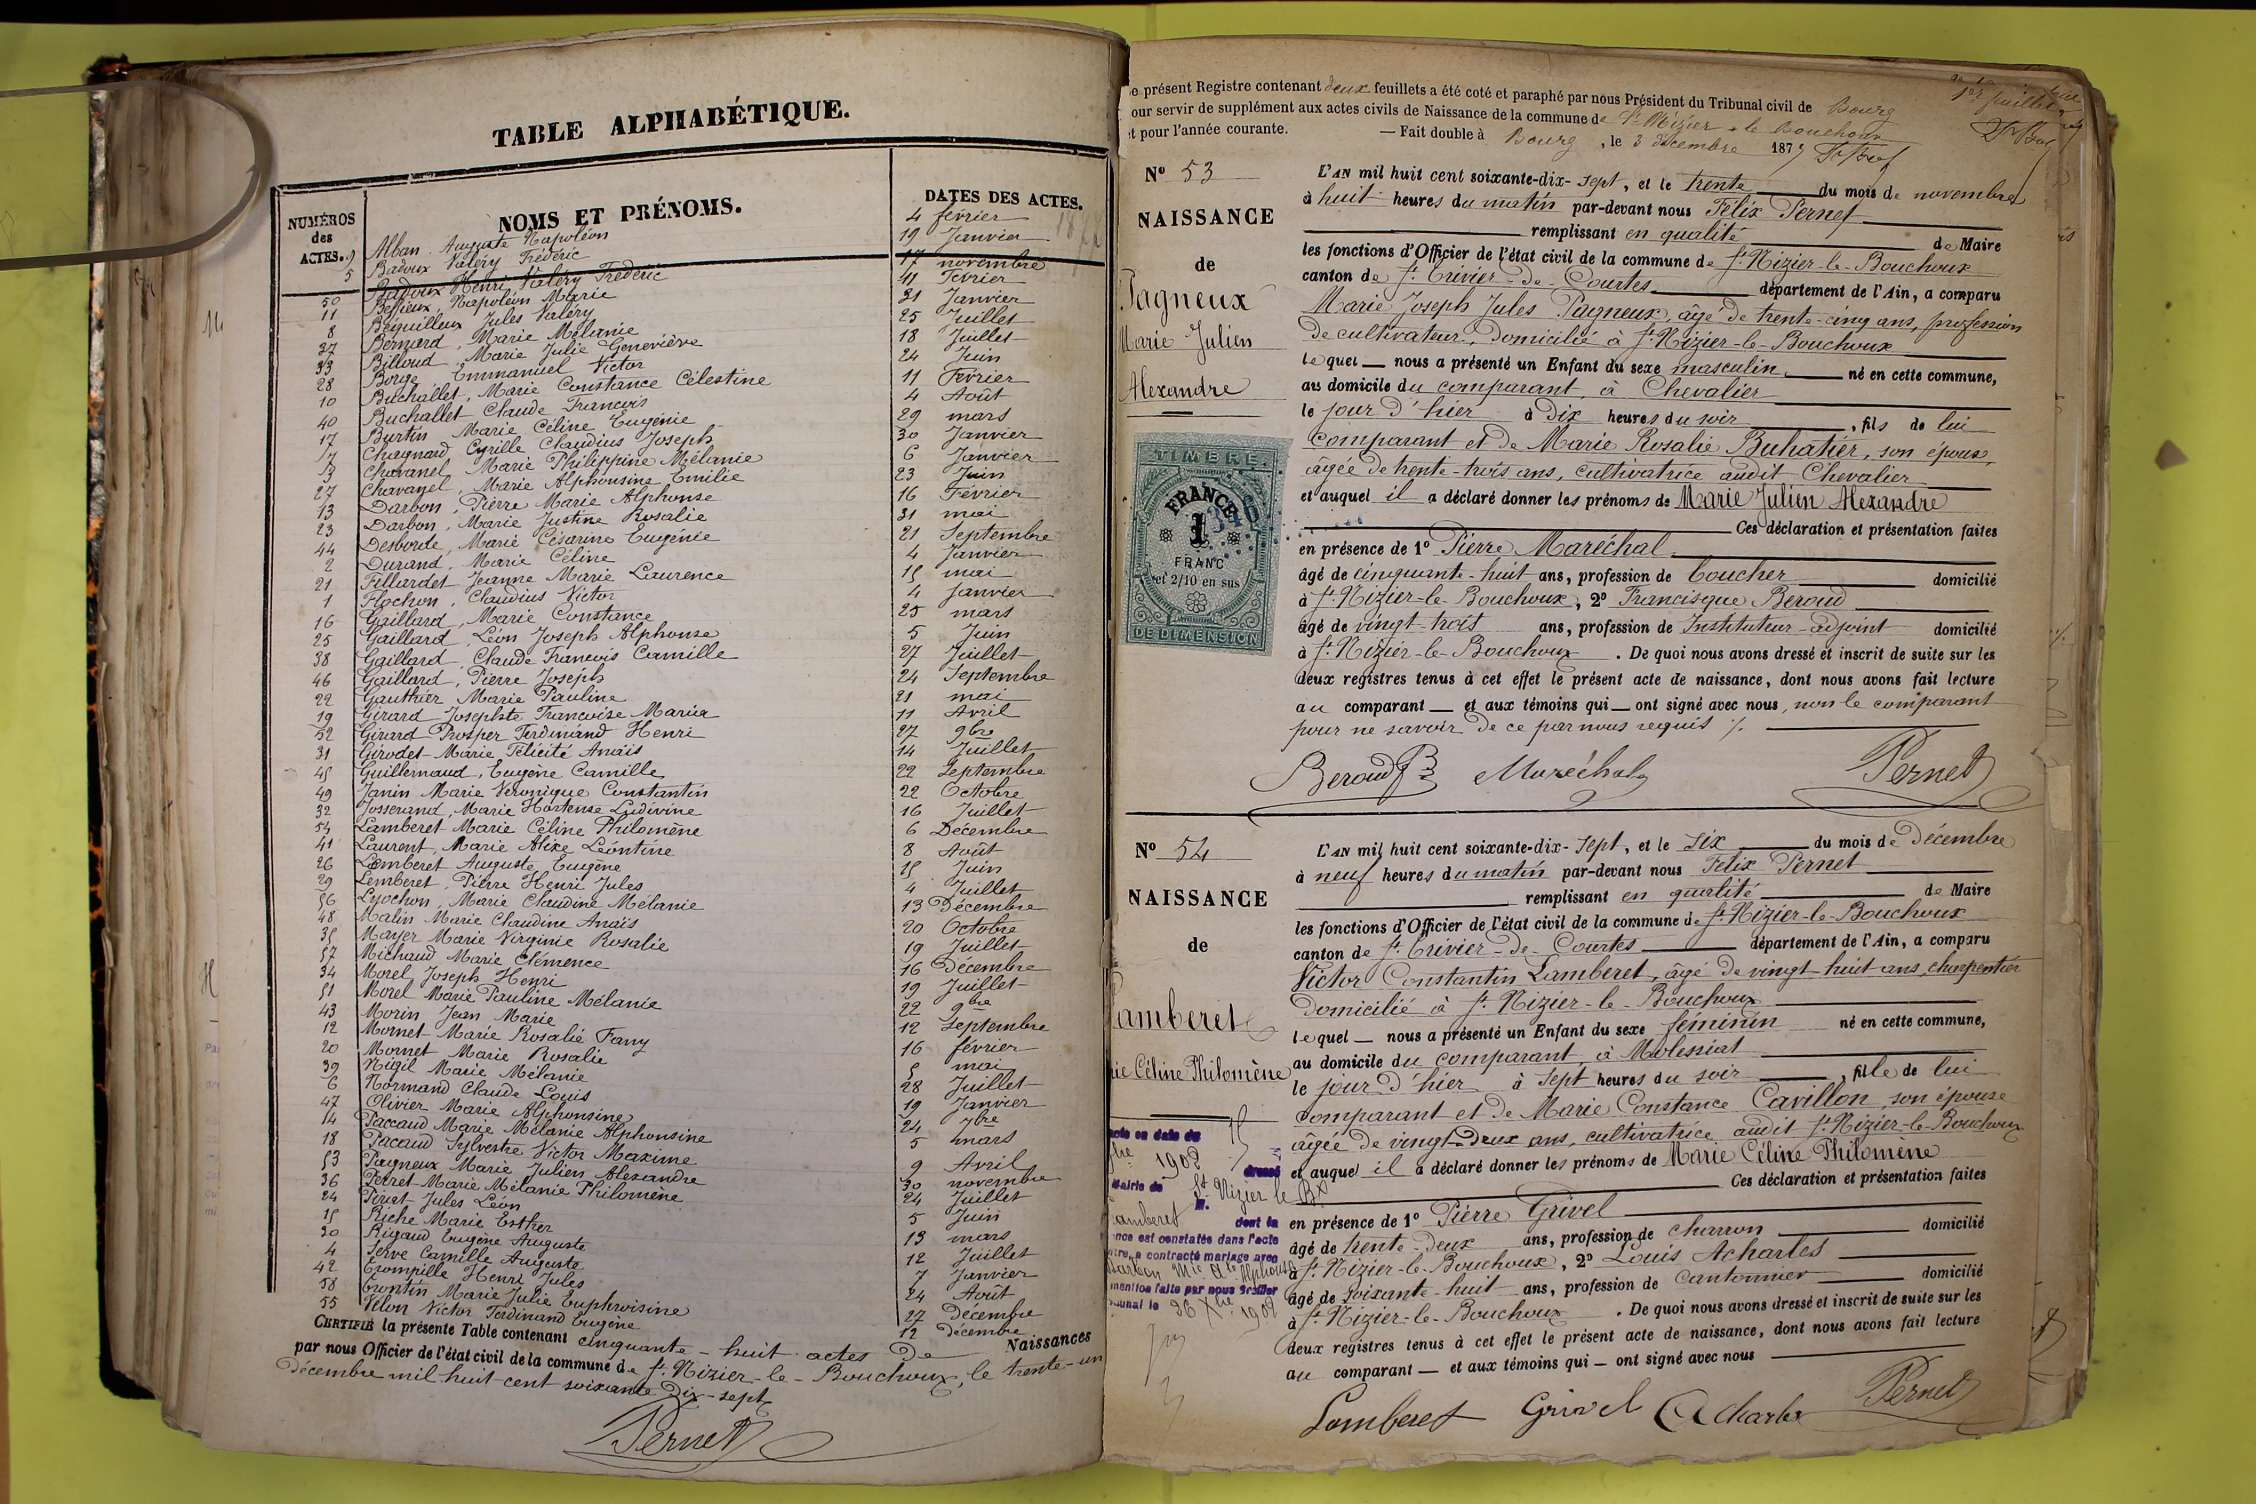 TABLE ALPHABÉTIQUE.
NUMÉROS des ACTES.
NOMS ET PRÉNOMS.
DATES DES ACTES.
9 Alban Auguste Napoléon 4 février
5 Badoux Valéry Frédéric 19 Janvier
50 Badoux Henri Valéry Frédéric 17 novembre
11 Napoléon Marie 11 Février
8 Béguilleux Jules Valéry 21 Janvier
37 Bernard, Marie Mélanie 25 Juillet
33 Billoud, Marie Julie Geneviève 18 Juillet
28 Borge Emmanuel Victor 24 Juin
10 Buchallet, Marie Constance Célestine 11 Février
40 Buchallet Claude François 4 Août
17 Burtin Marie Céline Eugénie 29 mars
7 Chagnard Cyrille Claudius Joseph 30 Janvier
3 Chavanel, Marie Philippine Mélanie 6 Janvier
27 Chavanel, Marie Alphonsine Emilie 23 Juin
13 Darbon, Pierre Marie Alphonse 16 Février
23 Darbon, Marie Justine Rosalie 31 mai
44 Desborde, Marie Césarine Eugénie 21 Septembre
2 Durand, Marie Céline 4 Janvier
21 Fillardet Jeanne Marie Laurence 15 mai
1 Flochon, Claudius Victor 4 Janvier
16 Gaillard, Marie Constance 25 mars
25 Gaillard, Léon Joseph Alphonse 5 Juin
38 Gaillard, Claude François Camille 27 Juillet
46 Gaillard, Pierre Joseph 24 Septembre
22 Gauthier, Marie Pauline 21 mai
19 Girard Josephte Françoise Maria 11 Avril
52 Girard Prosper Ferdinand Henri 27 9bre
31 Girodet Marie Félicité Anaïs 14 Juillet
45 Guillemaud, Eugène Camille 22 Septembre
49 Janin Marie Veronique Constantin 22 Octobre
32 Josserand, Marie Hortense Ludivine 16 Juillet
54 Lamberet Marie Céline Philomène 6 Décembre
41 Laurent, Marie Alixe Léontine 8 Août
26 Lemberet Auguste Eugène 15 Juin
29 Lemberet, Pierre Henri Jules 4 Juillet
56 Lyochon, Marie Claudine Mélanie 13 Décembre
48 Malin Marie Claudine Anaïs 20 Octobre
35 Mayer Marie Virginie Rosalie 19 Juillet
57 Michaud Marie Clémence 16 Décembre
34 Morel Joseph Henri 19 Juillet
51 Morel Marie Pauline Mélanie 22 9bre
43 Morin Jean Marie 12 Septembre
12 Mornet Marie Rosalie Fany 16 février
20 Mornet Marie Rosalie 5 mai
39 Nigil Marie Mélanie 28 Juillet
6 Normand Claude Louis 19 Janvier
47 Olivier Marie Alphonsine 24 7bre
14 Paccaud Marie Mélanie Alphonsine 5 mars
18 Pacaud Sylvestre Victor Maxime 9 Avril
53 Pagneux Marie Julien Alexandre 30 novembre
36 Perret Marie Mélanie Philomène 24 Juillet
24 Jules Léon 5 Juin
15 Riche Marie Esther 13 mars
30 Rigaud Eugène Auguste 12 Juillet
4 Serve Camille Auguste 7 Janvier
42 Trompille Henri Jules 24 Août
58 Trontin Marie Julie Euphroisine 27 Décembre
55 Velon Victor Ferdinand Eugène 12 Décembre
CERTIFIÉ la présente Table contenant cinquante-huit actes De Naissances
par nous Officier de l'état civil de la commune de St Nizier-le-Bouchoux, le trente-un
Décembre mil huit cent soixante Dix-sept
Pernet
e présent Registre contenant deux feuillets a été coté et paraphé par nous Président du Tribunal civil de Bourg
our servir de supplément aux actes civils de Naissance de la commune de St Nizier-le-Bouchoux
t pour l'année courante. — Fait double à Bourg, le 3 décembre 1877
No 53
NAISSANCE
de
Pagneux
Marie Julien
Alexandre
TIMBRE.
FRANCE
1
FRANC
et 2/10 en sus
DE DIMENSION
L'AN mil huit cent soixante-dix-sept, et le trente du mois de novembre
à huit heures du matin par-devant nous Félix Pernet
remplissant en qualité de Maire
les fonctions d'Officier de l'état civil de la commune de St Nizier-le-Bouchoux
canton de St Trivier-de-Courtes département de l'Ain, a comparu
Marie Joseph Jules Pagneux, âgé de trente-cinq ans, profession
de cultivateur, domicilié à St Nizier-le-Bouchoux
lequel — nous a présenté un Enfant du sexe masculin né en cette commune,
au domicile du comparant, à Chevalier
le jour d'hier à Dix heures du soir, fils de lui
comparant et de Marie Rosalie Buhatier, son épouse,
âgée de trente-trois ans, cultivatrice audit Chevalier
et auquel il a déclaré donner les prénoms de Marie Julien Alexandre
Ces déclaration et présentation faites
en présence de 1o Pierre Maréchal
âgé de cinquante-huit ans, profession de boucher domicilié
à St Nizier-le-Bouchoux, 2o Francisque Beroud
âgé de vingt-trois ans, profession de Instituteur-adjoint domicilié
à St Nizier-le-Bouchoux. De quoi nous avons dressé et inscrit de suite sur les
deux registres tenus à cet effet le présent acte de naissance, dont nous avons fait lecture
au comparant — et aux témoins qui — ont signé avec nous, non le comparant
pour ne savoir de ce par nous requis ./.
Beroud Maréchal Pernet
No 54
NAISSANCE
de
Lamberet
rie Céline Philomène
acte en date du 15
1902 dressé
Mairie de St Nizier le Bx
M.
Lamberet dont la
nce est constatée dans l'acte
tre, a contracté mariage avec
Darbon Mie Alphonse
mention faite par nous Greffier
bunal le 26 Xbre 1902
L'AN mil huit cent soixante-dix-sept, et le six du mois de Décembre
à neuf heures du matin par-devant nous Félix Pernet
remplissant en qualité de Maire
les fonctions d'Officier de l'état civil de la commune de St Nizier-le-Bouchoux
canton de St Trivier-de-Courtes département de l'Ain, a comparu
Victor Constantin Lamberet, âgé de vingt-huit ans, charpentier
domicilié à St Nizier-le-Bouchoux
lequel — nous a présenté un Enfant du sexe féminin né en cette commune,
au domicile du comparant, à Molessiat
le jour d'hier à sept heures du soir, fille de lui
comparant et de Marie Constance Cavillon, son épouse
âgée de vingt-deux ans, cultivatrice audit St Nizier-le-Bouchoux
et auquel il a déclaré donner les prénoms de Marie Céline Philomène
Ces déclaration et présentation faites
en présence de 1o Pierre Grivel
âgé de trente-deux ans, profession de charron domicilié
à St Nizier-le-Bouchoux, 2o Louis Acharles
âgé de soixante-huit ans, profession de cantonnier domicilié
à St Nizier-le-Bouchoux. De quoi nous avons dressé et inscrit de suite sur les
deux registres tenus à cet effet le présent acte de naissance, dont nous avons fait lecture
au comparant — et aux témoins qui — ont signé avec nous
Lamberet Grivel Acharles Pernet